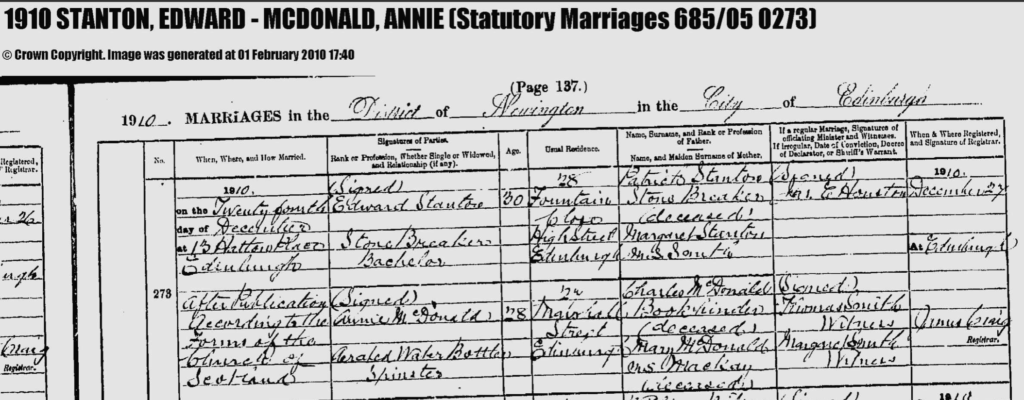 1910 STANTON, EDWARD - MCDONALD, ANNIE (Statutory Marriages 685/05 0273)
© Crown Copyright. Image was generated at 01 February 2010 17:40
(Page 137.)
1910. MARRIAGES in the District of Newington in the City of Edinburgh
Registered,
Registrar.
No.
When, Where, and How Married.
Signatures of Parties.
Rank or Profession, Whether Single or Widowed,
and Relationship (if any).
Age.
Usual Residence.
Name, Surname, and Rank or Profession
of Father.
Name, and Maiden Surname of Mother.
If a regular Marriage, Signatures of
officiating Minister and Witnesses.
If irregular, Date of Conviction, Decree
of Declarator, or Sheriff's Warrant.
When & Where Registered,
and Signature of Registrar.
273
1910.
on the Twenty fourth
day of December
at 13 Hatton Place
Edinburgh
After Publication
According to the
Forms of the
Church of
Scotland
(Signed)
Edward Stanton
Stone Breaker
Bachelor
(Signed)
Annie McDonald
Aerated Water Bottler
Spinster
30
28
28
Fountain
Close
High Street
Edinburgh
Street
Edinburgh
Patrick Stanton
Stone Breaker
(deceased)
Margaret Stanton
M.S.
Charles McDonald
Bookbinder
(deceased)
Mary McDonald
M.S. Mackay
(deceased)
(Signed)
E Houston
(Signed)
Thomas Smith
Witness
Smith
Witness
1910.
December 27
At Edinburgh
James Craig
Registrar.
Craig
Registrar.
1910